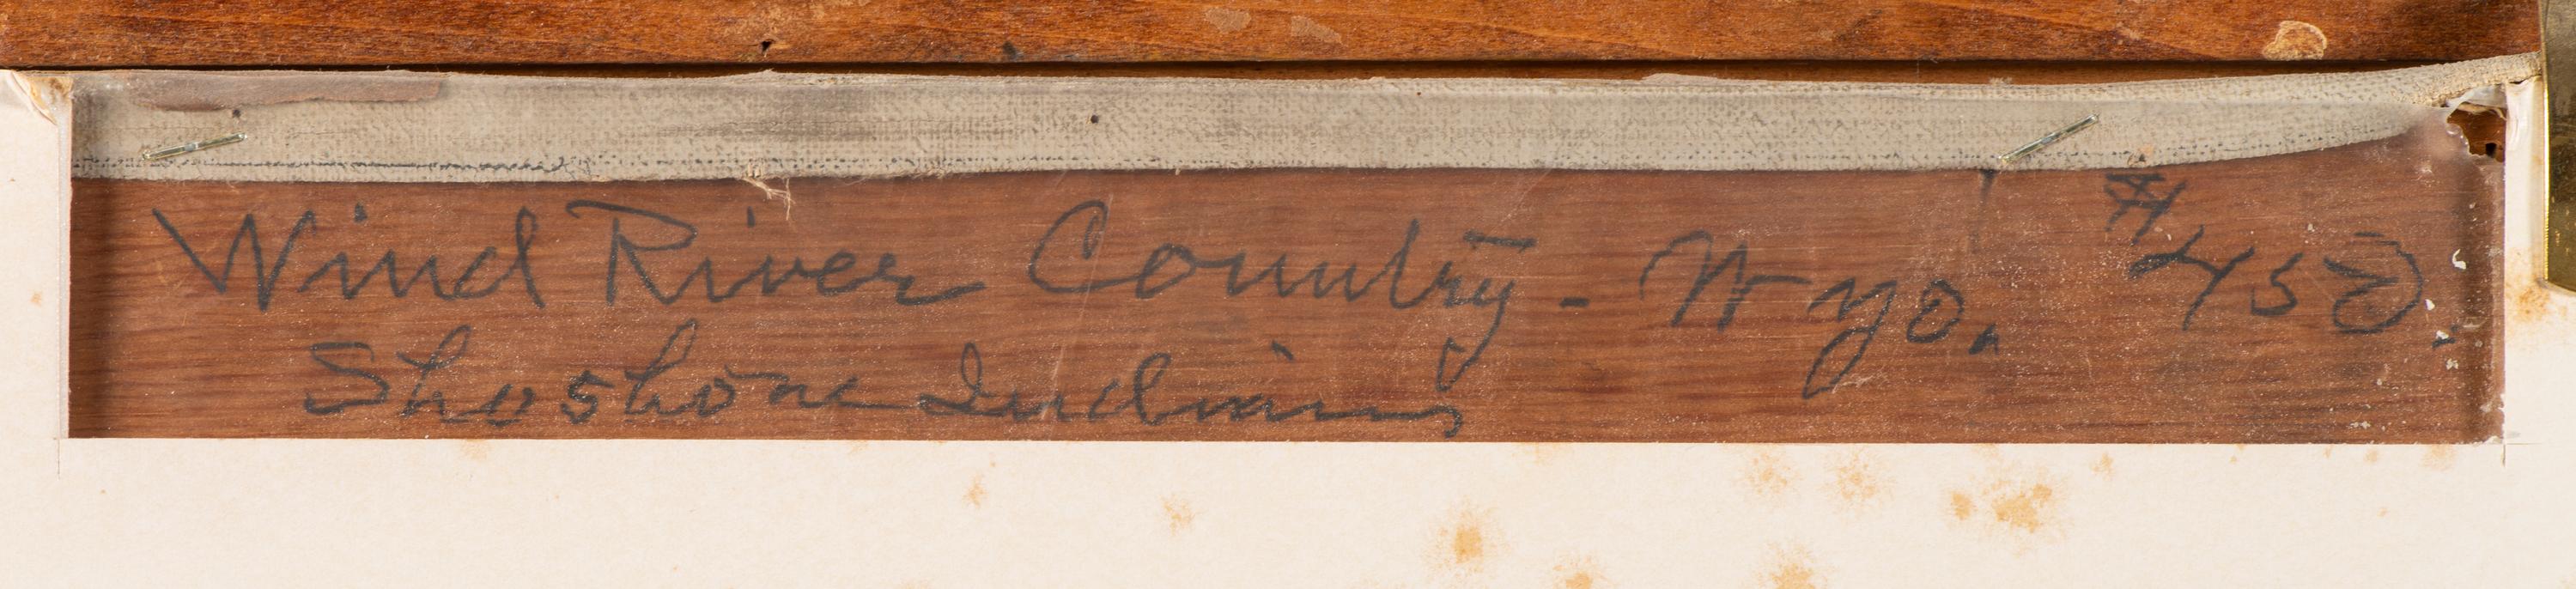 Wind River Country - Wyo. #450.
Shoshone Indians